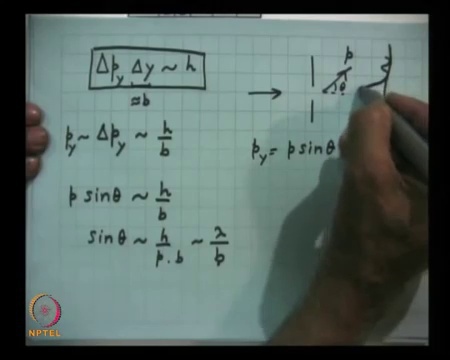 Δp_y Δy ~ h
≈ b
p_y ~ Δp_y ~ h/b
p sinθ ~ h/b
sinθ ~ h/(p.b) ~ λ/b
p
θ
p_y = p sinθ
NPTEL